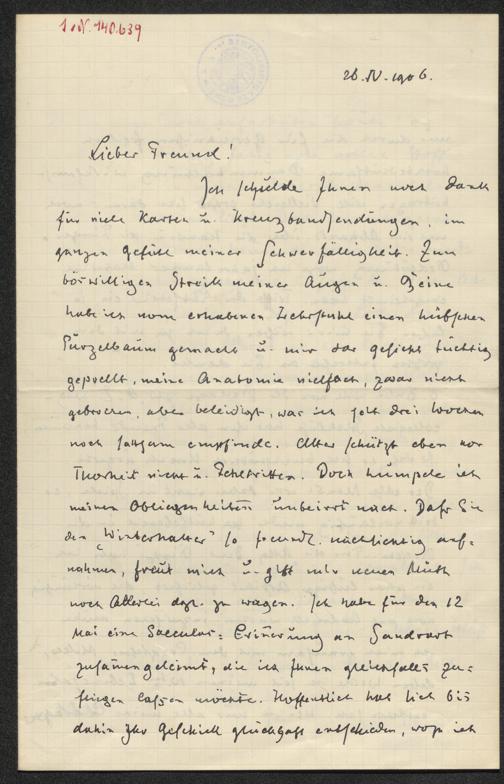 I. N. 140.639
26. IV. 1906.
Lieber Freund!
Ich schulde Ihnen noch Dank
für viele Karten u. Kreuzbandsendungen, im
ganzen Gefühl meiner Schwerfälligkeit. Zum
böswilligen Streik meiner Augen u. Beine
habe ich vom erhabenen Lehrstuhl einen hübschen
Purzelbaum gemacht u. mir das Gesicht tüchtig
geprellt, meine Anatomie vielfach, zwar nicht
gebrochen, aber beleidigt, was ich seit drei Wochen
noch sattsam empfinde. Alter schützt eben vor
Thorheit nicht u. Fehltritten. Doch humple ich
meinen Obliegenheiten unbeirrt nach. Daß Sie
den „Winterhalter" so freundl. nachsichtig auf=
nahmen, freut mich u. gibt mir neuen Muth
noch Allerlei dgl. zu wagen. Ich habe für den 12
Mai eine Saecular=Erinerung an Sandrart
zusamengeleimt, die ich Ihnen gleichfalls zu=
fliegen lassen möchte. Hoffentlich hat sich bis
dahin Ihr Geschick glückhaft entschieden, wozu ich